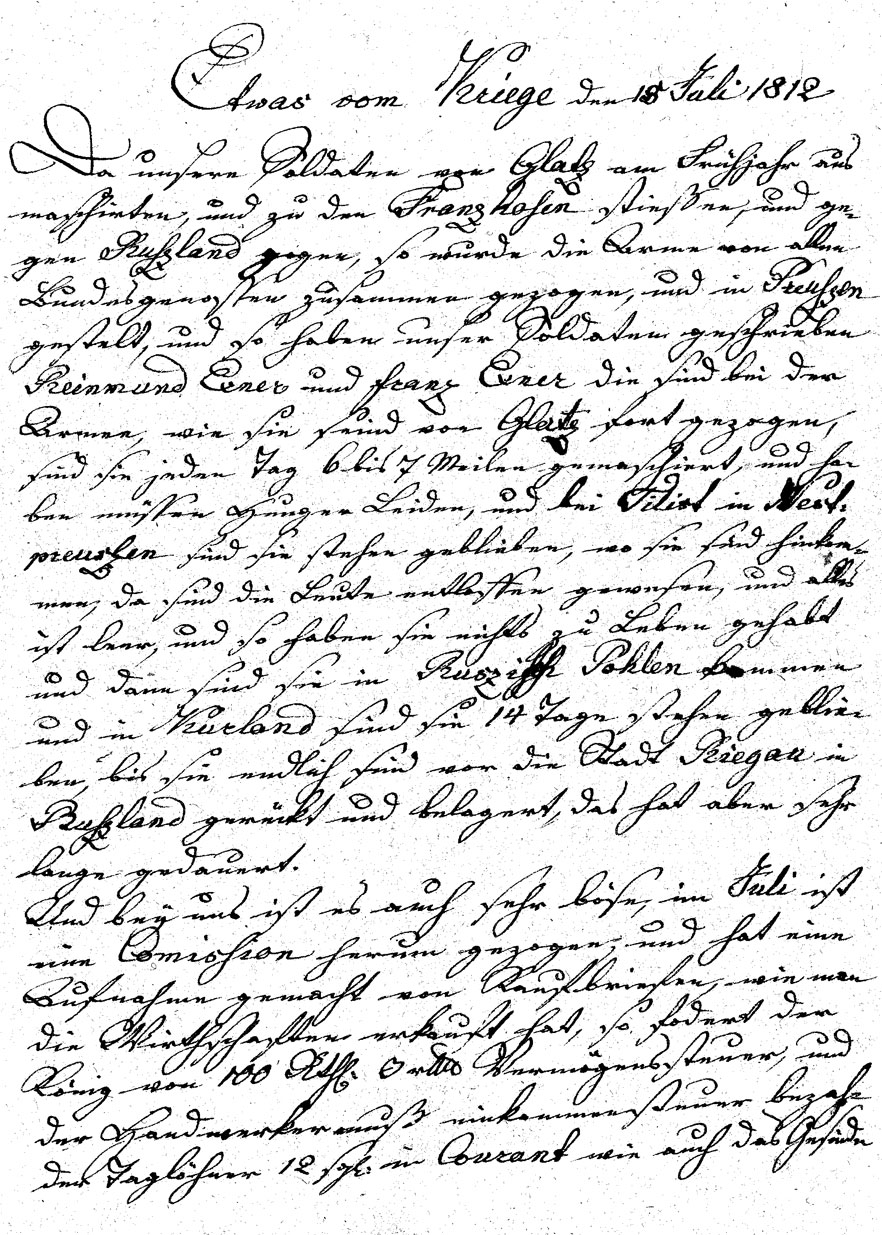 Etwas vom Kriege den 18 Juli 1812
Da unsere Soldaten von Glatz am Frühjahr aus
maschirten, und zu den Franzhosen stießen, und ge-
gen Rußland zogen, so wurde die Arme von allen
Bundesgenossen zusammen gezogen, und in Preußen
gestelt, und so haben unser Soldaten geschrieben
Reinmund Exner und Franz Exner die sind bei der
Armee, wie sie seind von Glatz fort gezogen,
sind sie jeden Tag 6 bis 7 Meilen gemaschiert, und ha-
ben müssen Hunger Leiden, und bei Tilist in West-
preußen sind sie stehen geblieben, wo sie sind hinkom-
men, da sind die Leute entloffen gewesen, und alles
ist leer, und so haben sie nichts zu Leben gehabt
und dann sind sie in Ruszisch Pohlen kommen
und in Kurland sind sie 14 Tage stehen geblie-
ben, bis sie endlich seind vor die Stadt Riegau in
Rußland gerückt und belagert, das hat aber sehr
lange gedauert.
Und bey uns ist es auch sehr böse, im Juli ist
eine Comission herum gezogen, und hat eine
Aufnahme gemacht von Kaufbriefen, wie man
die Wirthschaften erkauft hat, so fodert der
König von 100 Rth. 3 Vermögenssteuer, und
der Handwerker muß einkommensteuer bezah-
der Taglöhner 12 sgl. in Courant wie auch das Gesinde